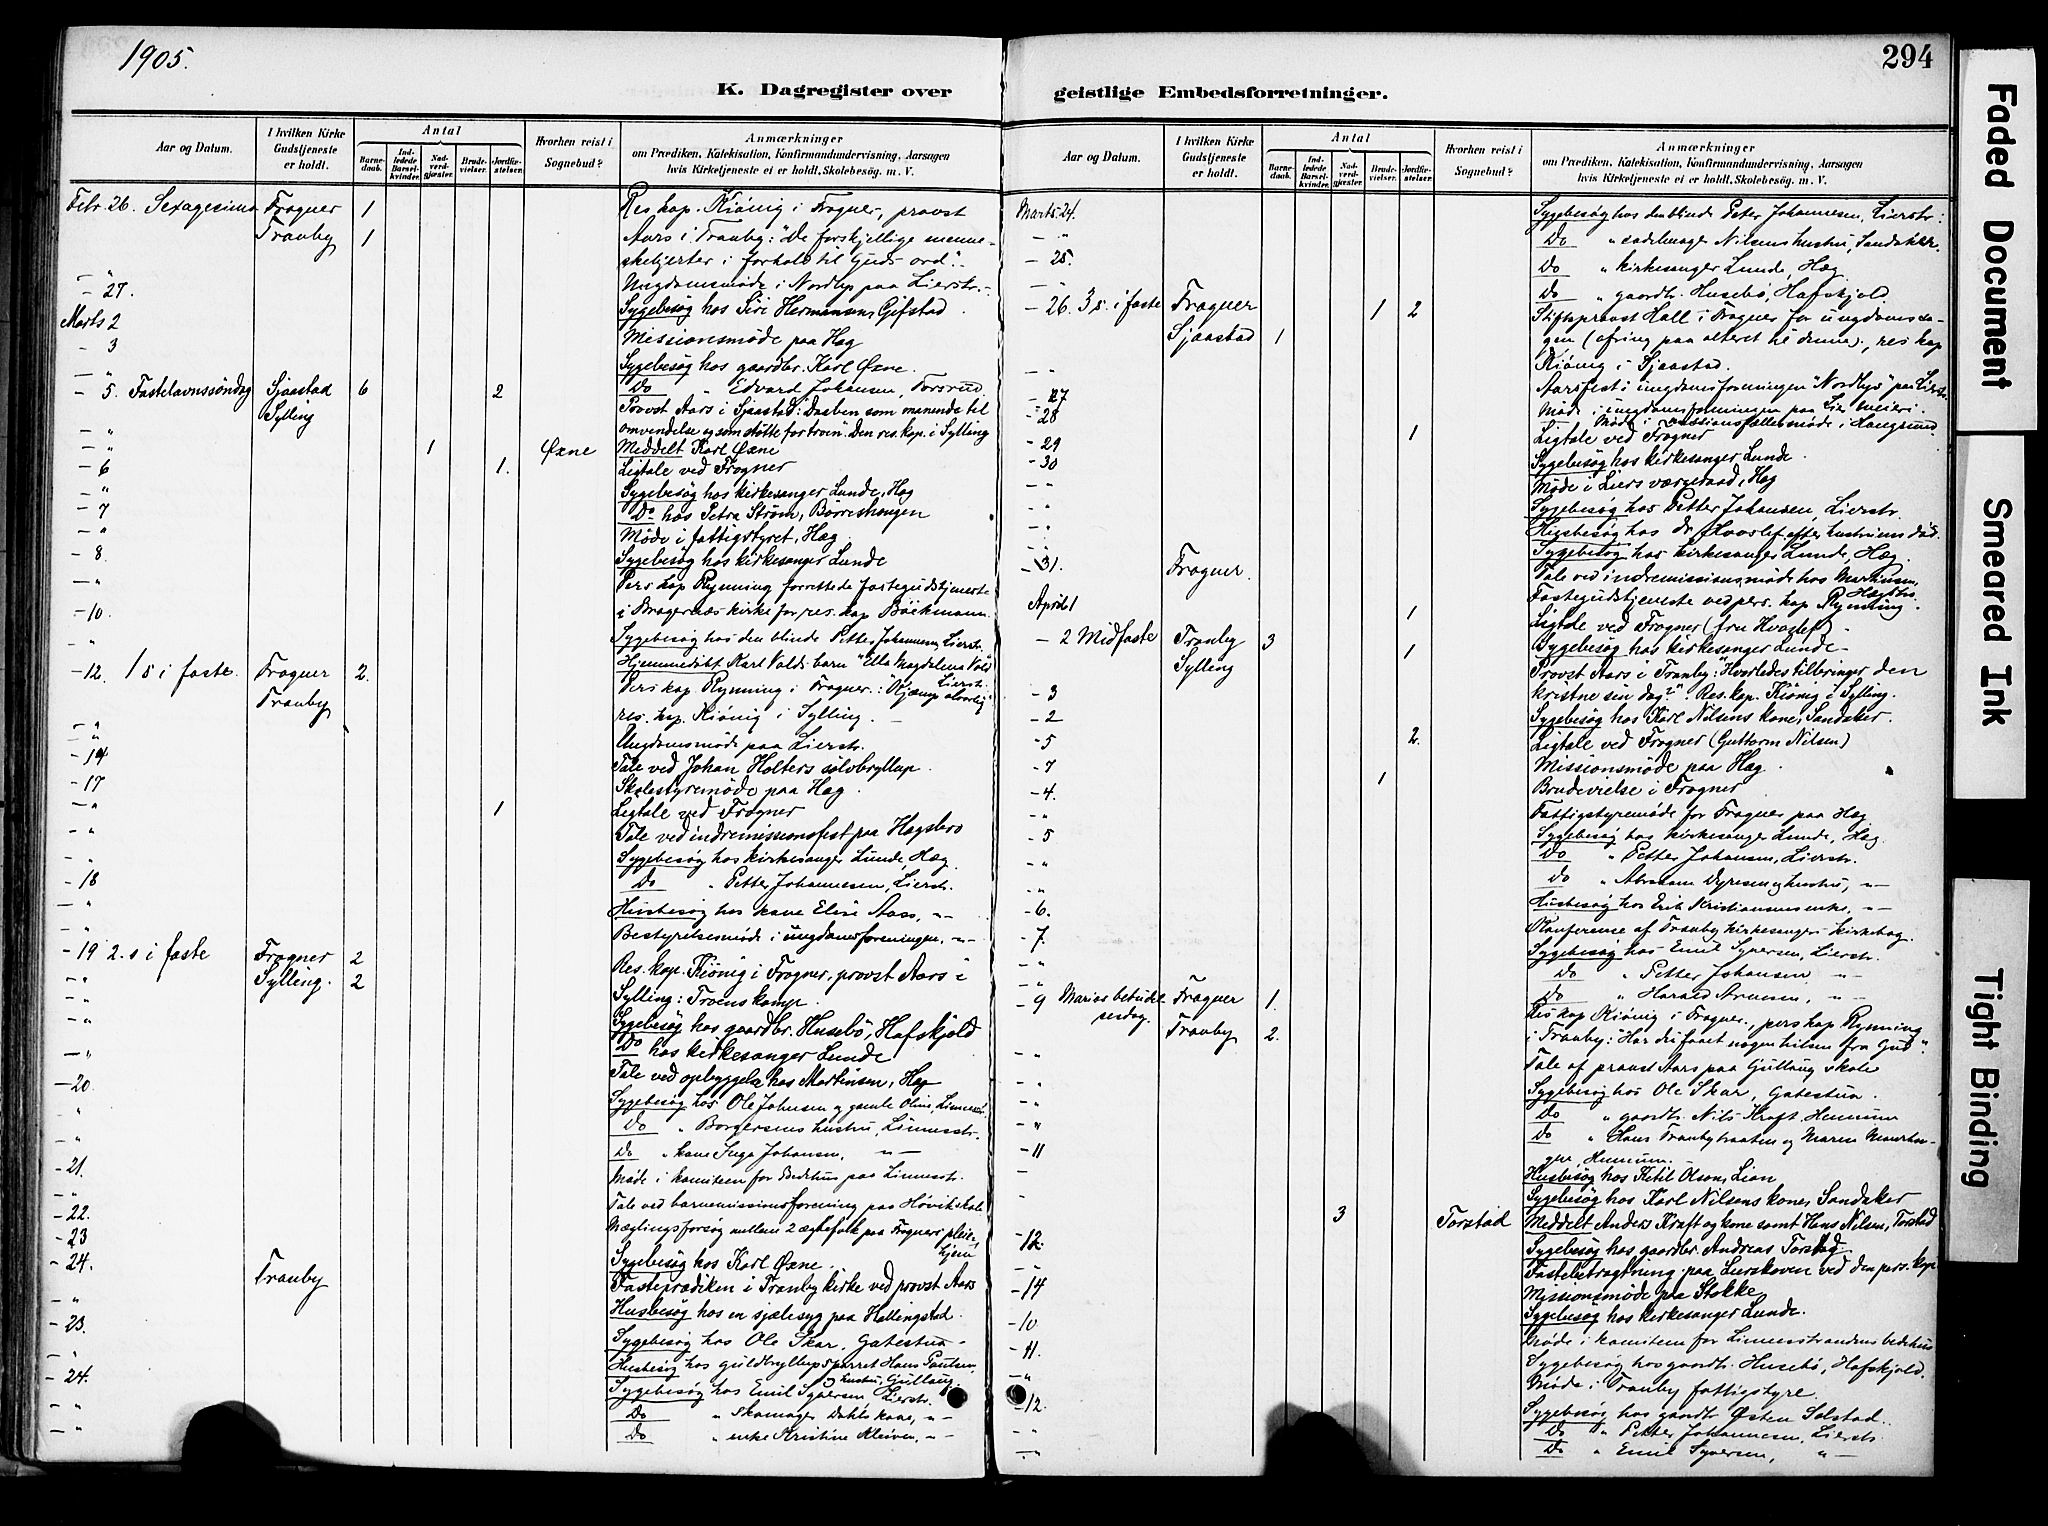 1905.
K. Dagregister over
Aar og Datum.
I hvilken Kirke Gudstjeneste er holdt.
Antal
Barnedaab.
Indledede Barselkvinder.
Nadverdgjæster.
Brudevielser.
Jordfæstelser.
Hvorhen reist i Sognebud?
Anmærkninger
om Prædiken, Katekisation, Konfirmandundervisning, Aarsagen
hvis Kirketjeneste ei er holdt, Skolebesøg. m. V.
Febr. 26. Sexagesima Frogner 1 Res. kap. Kiönig i Frogner, provst
Tranby 1 Aars i Tranby: "De forskjellige menne-
skehjerter i forhold til Guds ord".
- 27. Ungdomsmöde i Nordlys paa Lierstr.
Marts 2 Sygebesög hos Siri Hermansen, Gifstad
- 3 Missionsmöde paa Hæg
Sygebesög hos gaardbr. Karl Øxne.
- 5. Fastelavnssöndag Sjaastad 6 2 Do " Edvard Johansen, Torsrud.
Sylling Provst Aars i Sjaastad: Daaben som manende til
omvendelse og som støtte for troen". Den res. kap. i Sylling
- " 1 Øxne Meddelt Karl Øxne
- 6 1. Ligtale ved Frogner
- " Sygebesög hos kirkesanger Lunde, Hæg
- 7 Do hos Petra Ström, Börreshaugen
- " Möde i fattigstyret, Hæg.
- 8 Sygebesög hos kirkesanger Lunde
- " Pers. kap. Rynning forrettede fastegudstjeneste
- 10. i Bragernæs kirke for res. kap. Böckmann.
- " Sygebesög hos den blinde Petter Johannesen, Lierstr.
- 12. 1 s i faste. Frogner 2. Hjemmedöbt Karl Volds barn "Ella Magdalena Vold
Lierstr.
Tranby Pers. kap. Rynning i Frogner: "Kjæmp alvorlig"
res. kap. Kiönig i Sylling.
- " Ungdomsmöde paa Lierstr.
- 14 Tale ved Johan Holters sølvbryllup.
- 17 Skolestyremöde paa Hæg.
- " 1 Ligtale ved Frogner
- " Tale ved indremissionsfest paa Hægsbro
- " Sygebesög hos kirkesanger Lunde, Hæg
- 18 Do " Petter Johannesen, Lierstr.
- " Husbesög hos kone Elise Aass, -"-
- " Bestyrelsesmöde i ungdomsforeningen, -"-
- 19 2. s i faste Frogner 2 Res. kap. Kiönig i Frogner, provst Aars i
Sylling. 2 Sylling: Troens kamp.
- " Sygebesög hos gaardbr. Husebö, Hafskjold
- " Do hos kirkesanger Lunde
- 20. Tale ved opbyggelse hos Martinsen, Hæg
Sygebesög hos Ole Johnsen og gamle Oline, Linnesstr.
Do " Borgersens hustru, Linnesstr.
- 21. Do " kone Inga Johansen, -"-
Möde i komiteen for Bedehus paa Linnesstr.
- 22. Tale ved barnemissionsforening paa Hövik skole
- 23 Mæglingsforsög mellem 2 ægtefolk paa Frogners pleie-
hjem
- 24. Sygebesög hos Karl Øxne.
Tranby Fasteprædiken i Tranby kirke ved provst Aars
- " Husbesög hos en sjælesyg paa Hellingstad.
- 23. Sygebesög hos Ole Skar, Gatestua
- " Husbesög hos guldbryllupsparret Hans Paulsen
- 24. hustru, Gullaug.
Sygebesög hos Emil Syversen Lierstr.
- " Do " Skomager Dahls kone, -"-
- " Do " enke Kristine Kleiven, -"-
294
geistlige Embedsforretninger.
Aar og Datum.
I hvilken Kirke Gudstjeneste er holdt.
Antal
Barnedaab.
Indledede Barselkvinder.
Nadverdgjæster.
Brudevielser.
Jordfæstelser.
Hvorhen reist i Sognebud?
Anmærkninger
om Prædiken, Katekisation, Konfirmandundervisning, Aarsagen
hvis Kirketjeneste ei er holdt, Skolebesøg. m. V.
Marts 24. Sygebesög hos den blinde Peter Johannesen, Lierstr.
- " Do " sadelmager Nilsens hustru, Sandaker.
- 25. Do " kirkesanger Lunde, Hæg.
Do " gaardbr. Husebö, Hafskjold
- 26. 3 s. i faste Frogner 1 2 Stiftsprovst Hall i Frogner for ungdomssa-
Sjaastad 1 gen (ofring paa alteret til denne), res kap
Kiönig i Sjaastad.
- 27 Aarsfest i ungdomsforeningen "Nordlys" paa Lierstr.
- 28 Möde i ungdomsforeningen paa Lier meieri.
Möde i missionsfællesmöde i Langsrud.
- 29 1 Ligtale ved Frogner
- 30 Sygebesög hos kirkesanger Lunde.
- " Möde i Liers værgeraad, Hæg
- " Sygebesög hos Petter Johansen, Lierstr.
Husbesög hos dr. Hvoslef efter hustruens död.
Sygebesög hos kirkesanger Lunde, Hæg
- 31. Frogner. Tale ved indremissionsmöde hos Martinsen,
Hægsbro
Fastegudstjeneste ved pers. kap Rynning.
April 1 1 Ligtale ved Frogner (fru Hvoslef)
- 2 Midfaste Tranby 3 Sygebesög hos kirkesanger Lunde
Sylling 1 Provst Aars i Tranby: "Hvorledes tilbringer den
kristne sin dag?". Res. kap. Kiönig i Sylling.
- 3
- 2 Sygebesög hos Karl Nilsens kone, Sandaker.
- 5 2. Ligtale ved Frogner (Guttorm Nilsen)
- 7 Missionsmöde paa Hæg
- 4. 1 Brudevielse i Frogner
- " Fattigstyremöde for Frogner paa Hæg
- 5 Sygebesög hos kirkesanger Lunde, Hæg
- " Do " Petter Johansen, Lierstr.
- " Do " Abraham Dyresen og hustru, -"-
- 6. Husbesög hos Erik Kristiansens enke, -"-
- 7. Konference af Tranby kirkesanger - kirkebog.
- " Sygebesög hos Emil Syversen, Lierstr.
- " Do " Petter Johansen -"-
Do " Harald Arnesen, -"-
- 9 Marias bebudel- Frogner 1. Res kap Kiönig i Frogner, pers kap Rynning
sesdag. Tranby 2. i Tranby: "Har du faaet nogen hilsen fra Gud".
- " Tale af provst Aars paa Gullaug skole
- " Sygebesög hos Ole Skar, Gatestua.
- " Do " gaardbr. Nils Kraft Hennum
- " Do " Hans Tranbybraaten og Maren
- 11 Hennum.
Husbesög hos Ketil Olsen, Lian
Sygebesög hos Karl Nilsens kone, Sandaker
3 Torstad Meddelt Anders Kraft og kone samt Hans Nilsen, Torstad
- 12. Sygebesög hos gaardbr. Andreas Torstad
Fastebetragtning paa Lierskoven ved den pers. kap
- 14 Missionsmöde paa Stokke
- 10 Sygebesög hos kirkesanger Lunde.
- 11. Möde i komiteen for Linnesstrandens bedehus
Sygebesög hos gaardbr. Husebö, Hafskjold.
- " Möde i Tranby fattigstyre.
- 12. Sygebesög hos gaardbr Østen Solstad.
- " Do " Petter Johannesen, Lierstr.
- " Do " Emil Syversen, "-
Faded Document
Smeared Ink
Tight Binding